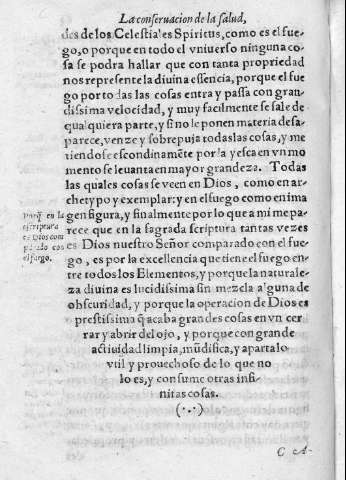 La conseruacion de la salud,
des de los Celestiales Spiritus, como es el fue-
go, o porque en todo el vniuerso ninguna co-
sa se podra hallar que con tanta propriedad
nos represente la diuina essencia, porque el fue
go por todas las cosas entra y passa con gran-
dissima velocidad, y muy facilmente se sale de
qualquiera parte, y si no le ponen materia desa-
parece, venze y sobrepuja todas las cosas, y me
tiendose escondinamẽte por la yesca en vn mo
mento se leuanta en mayor grandeza. Todas
las quales cosas se veen en Dios, como en ar-
chetypo y exemplar: y en el fuego como en ima
gen figura, y finalmente por lo que a mi me pa-
rece que en la sagrada scriptura tantas vezes
es Dios nuestro Señor comparado con el fue-
go, es por la excellencia que tiene el fuego en-
tre todo los Elementos, y porque la naturale-
za diuina es lucidissima sin mezcla alguna de
obscuridad, y porque la operacion de Dios es
prestissima q̃ acaba grandes cosas en vn cer
rar y abrir del ojo, y porque con grande
actiuidad limpia, mũdifica, y aparta lo
vtil y prouechoso de lo que no
lo es, y consume otras infi-
nitas cosas.
(∙.∙)
Porq̃ en la
escriptura
es Dios com
parado con
el fuego.
C A-